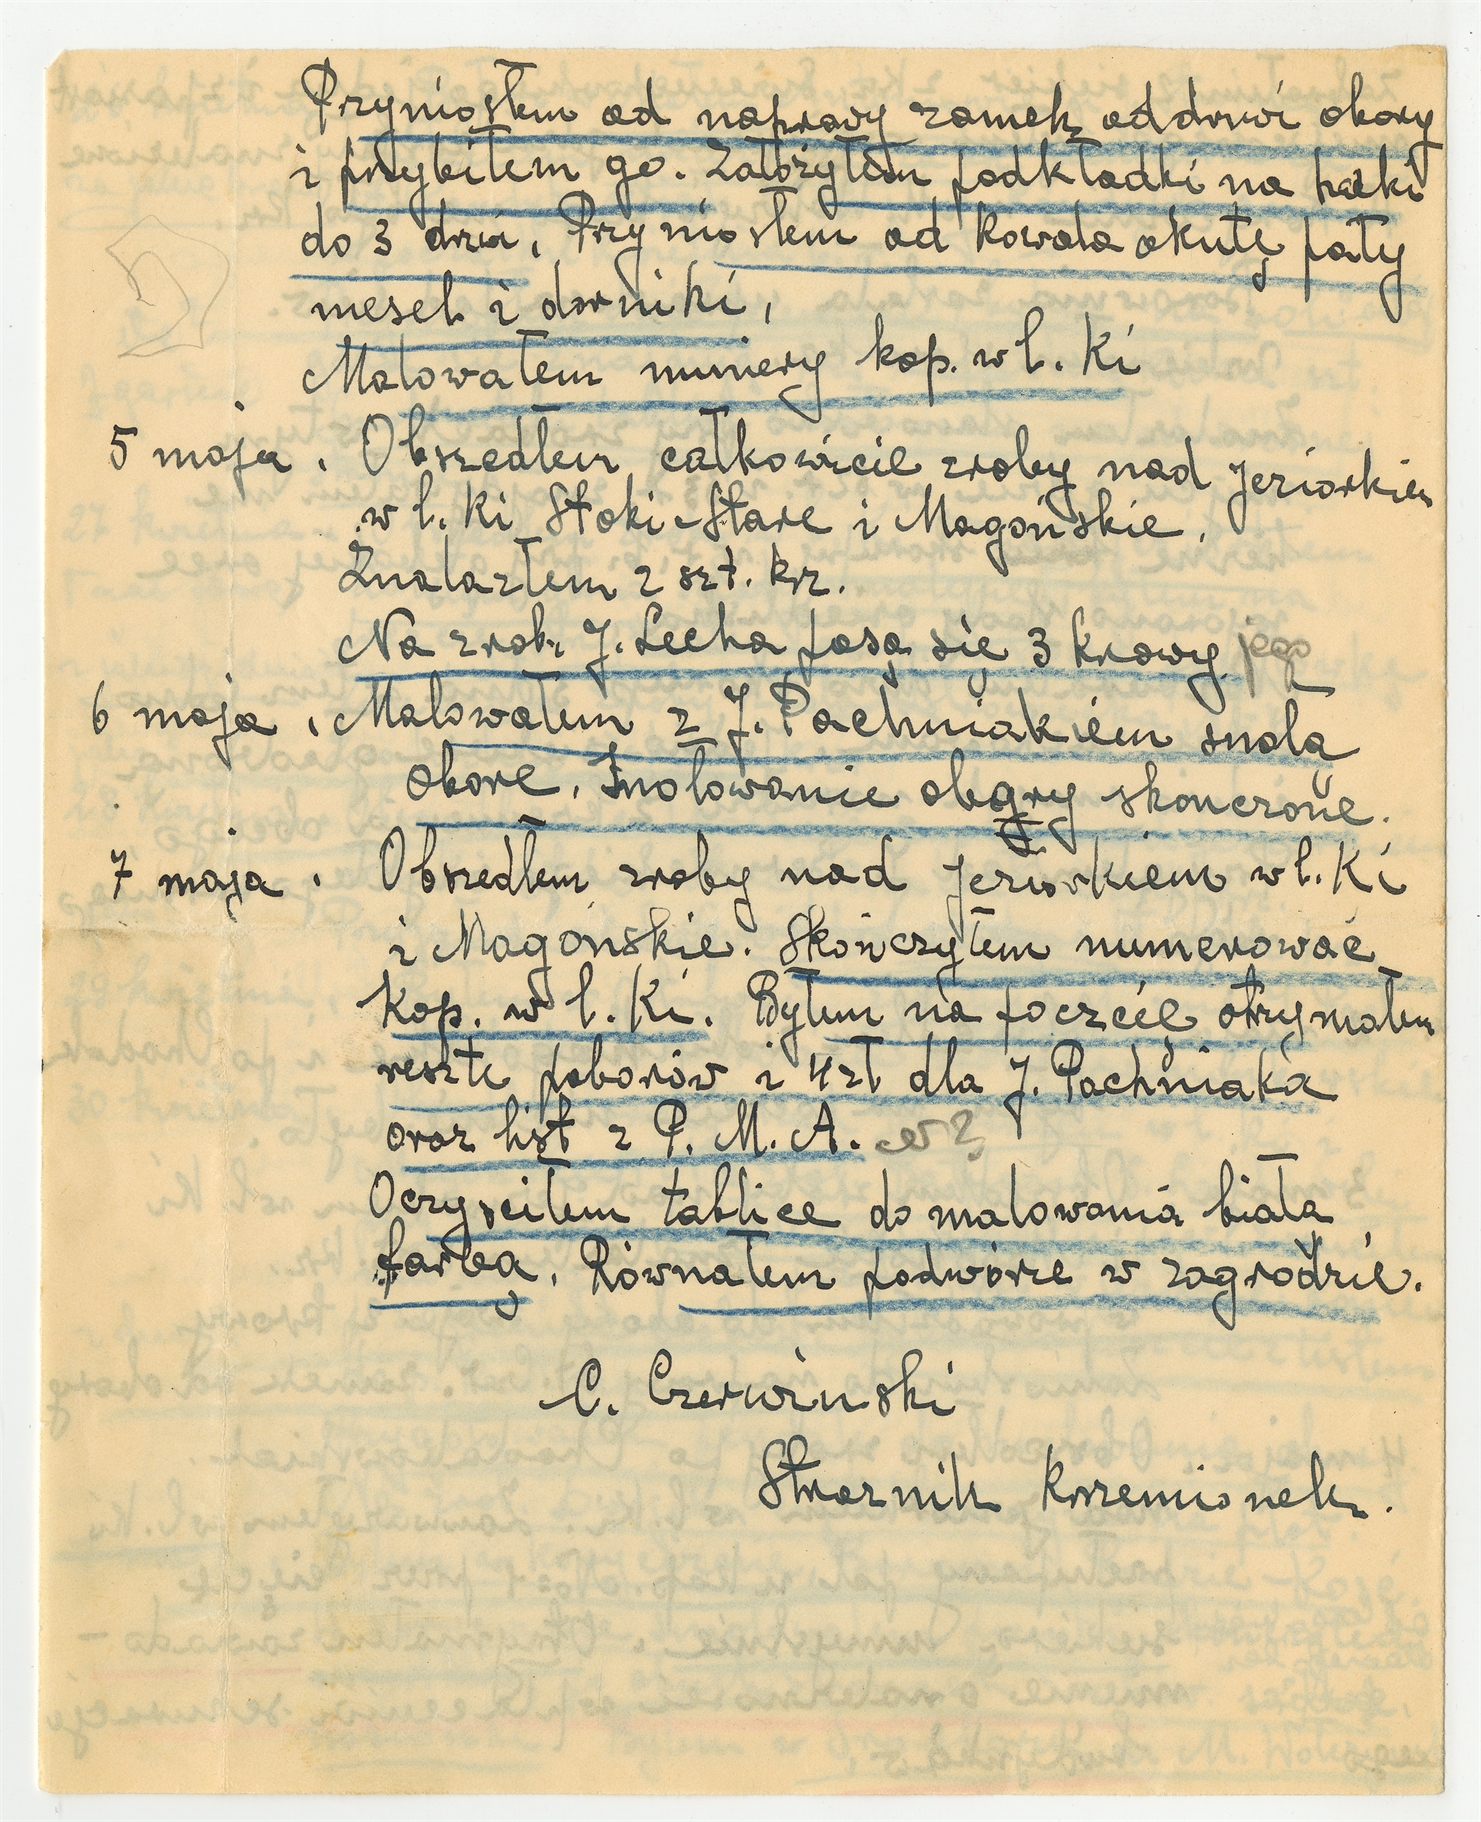 Pryniosłem od naprawy zamek od drwi obory
i przybiłem go. Założyłem podkładki na haki
do 3 drwi. Pryniosłem od kowala okutę pały
mesel i dorniki,
Malowałem numery kop. w l. Ki
5 maja. Obszedłem całkowicie zroby nad Jeziorkiem
w l. Ki Stoki-Stare i Magońskie.
Znalazłem 2 szt. kz.
Na zrob. J. Lecha pasą sie 3 krowy jego
6 maja. Malowałem z J. Pachniakiem smolą
obore. Smolowanie obory skonczone.
7 maja. Obszedłem zroby nad Jeziorkiem w l. Ki
i Magońskie. Skończyłem numerować
kop. w l. Ki. Byłem na poczcie otrzymałem
reszte poborów i 4 zł dla J. Pachniaka
oraz list z P. M. A. co?
Oczyściłem tablice do malowania białą
farbą. Równałem podwórze w zagrodzie.
C. Czerwinski
Straznik Krzemionek.